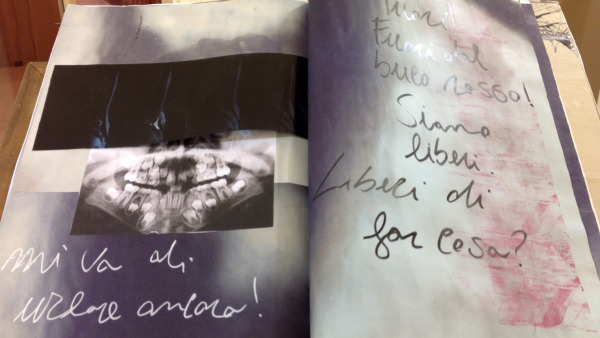 mi va di
urlare ancora!
Fuori!
Fuori dal
buco rosso!
Siamo
liberi.
Liberi di
far cosa?